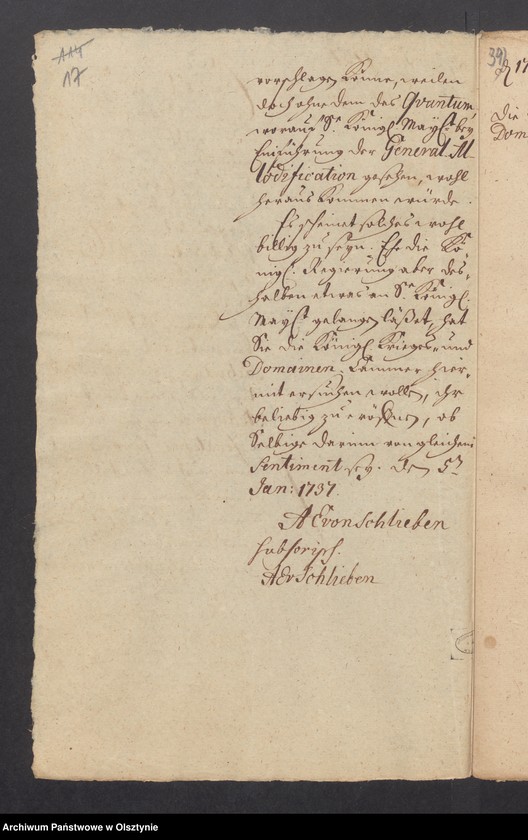 114
17
vorschlagen könne, weilen
doch ohne dem das Quantum
worauf Se. Königl. Mayt. bey
Einführung der General All
lodification gesehen, wohl
heraus kommen würde.
Es scheinet solches wohl
billig zu seyn. Ehe die Kö-
nigl. Regierung aber des-
halben etwas an Se. Königl.
Mayt. gelangen läßet, hat
Sie die Königl. Krieges- und
Domainen Cammer hier-
mit ersuchen wollen, ihr
beliebig zu eröffnen, ob
Selbige darin von gleichem
Sentiment sey. den 5n
Jan: 1737.
A E von Schlieben
subscrips.
A E v Schlieben
39
17
Die
Dom
Archiwum Państwowe w Olsztynie